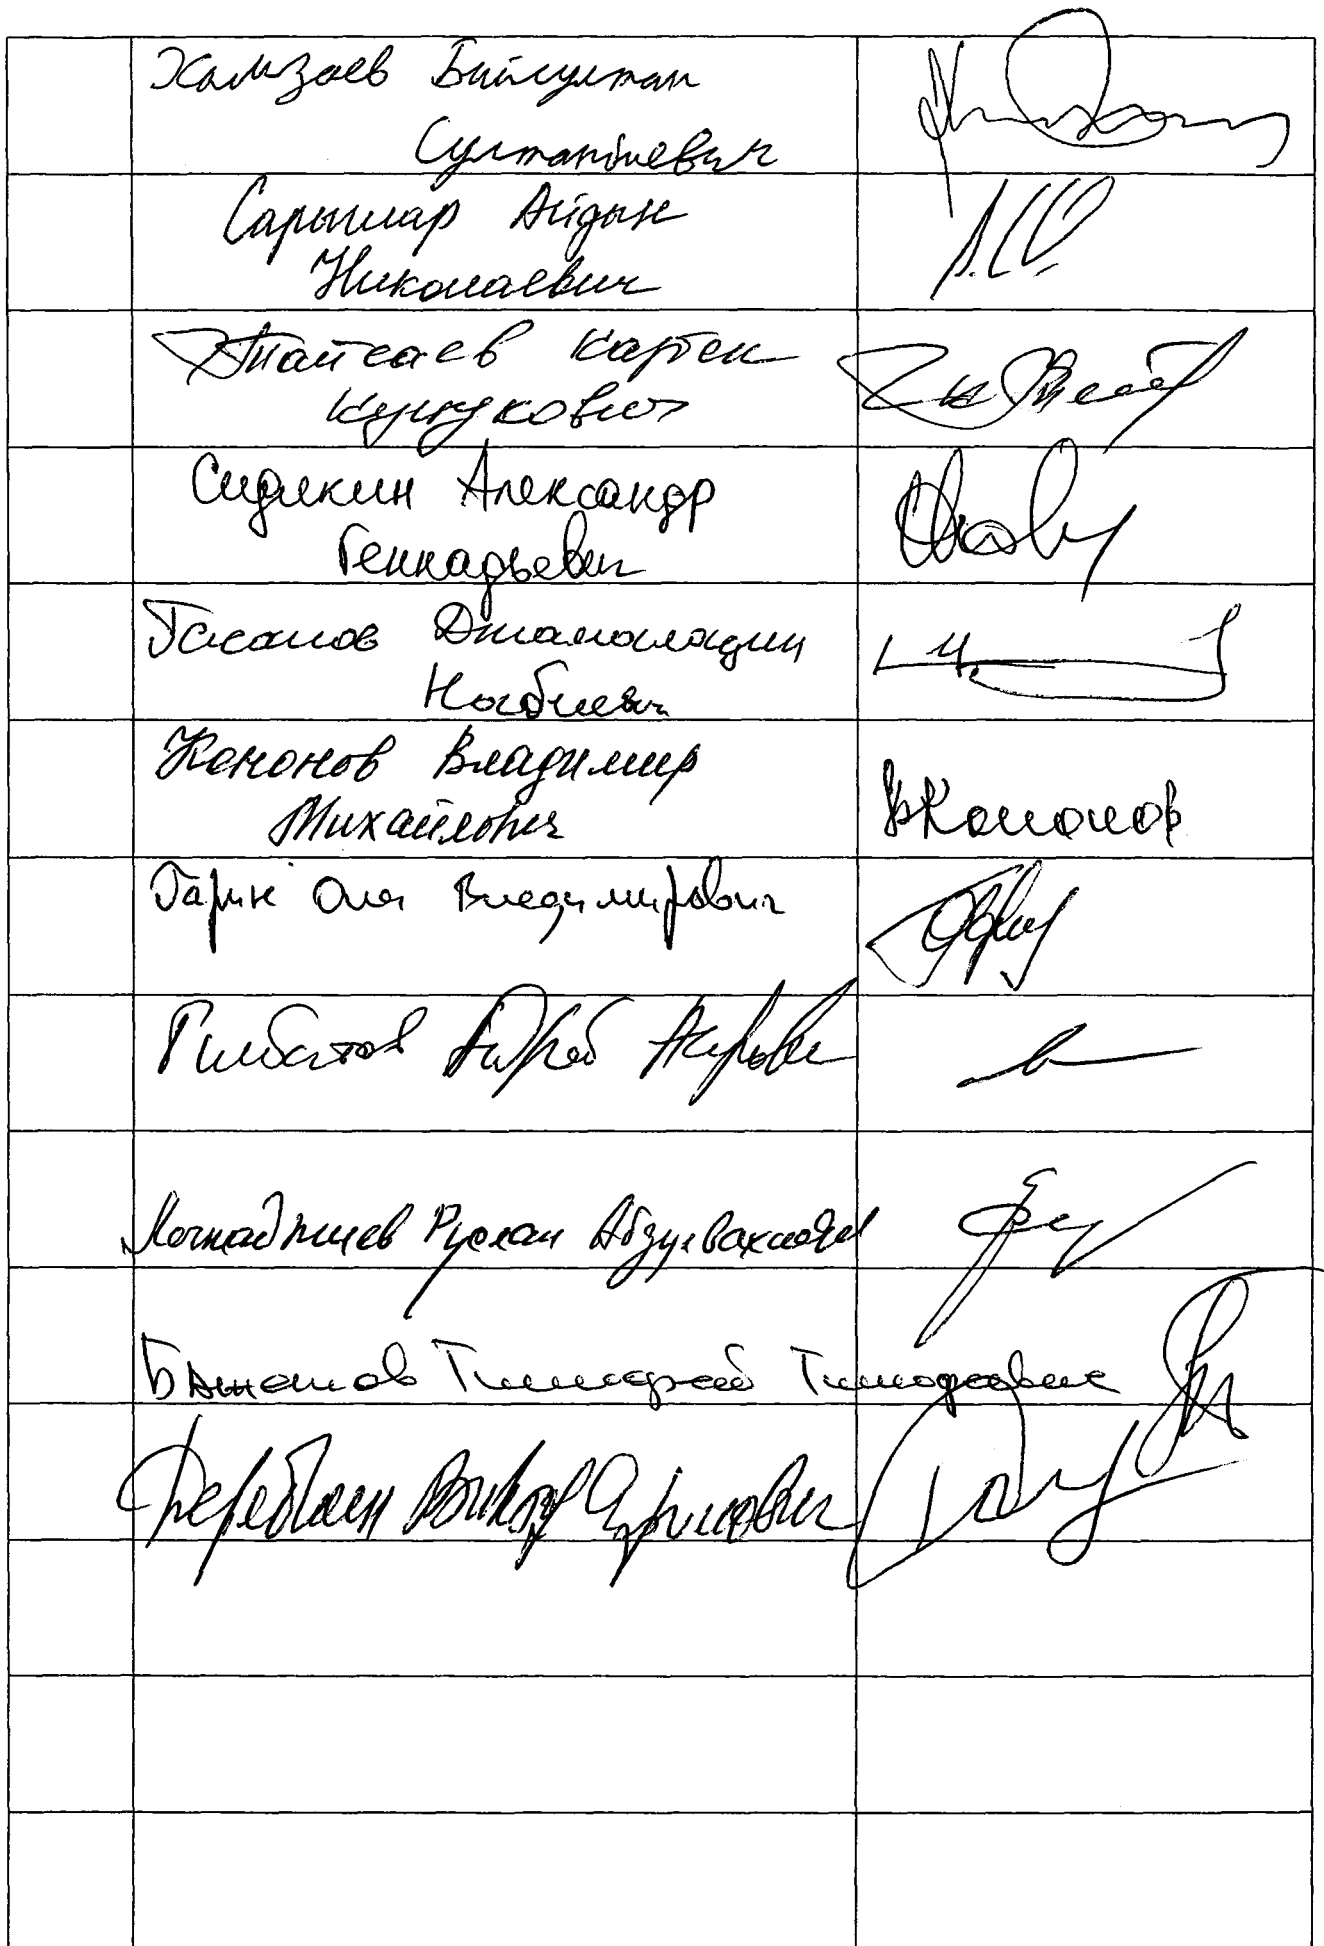 Хамзаев Бийсултан
Султанбиевич
Сарыглар Айдын
Николаевич
Тайсаев Казбек
Куцукович
Сидякин Александр
Геннадьевич
Гасанов Джамаладин
Набиевич
Кононов Владимир
Михайлович
ВКононов
Гарин Олег Владимирович
Андрей
Руслан Абдулвахидович
Бажанов Тимофей Тимофеевич
Дерябкин Виктор Ефимович